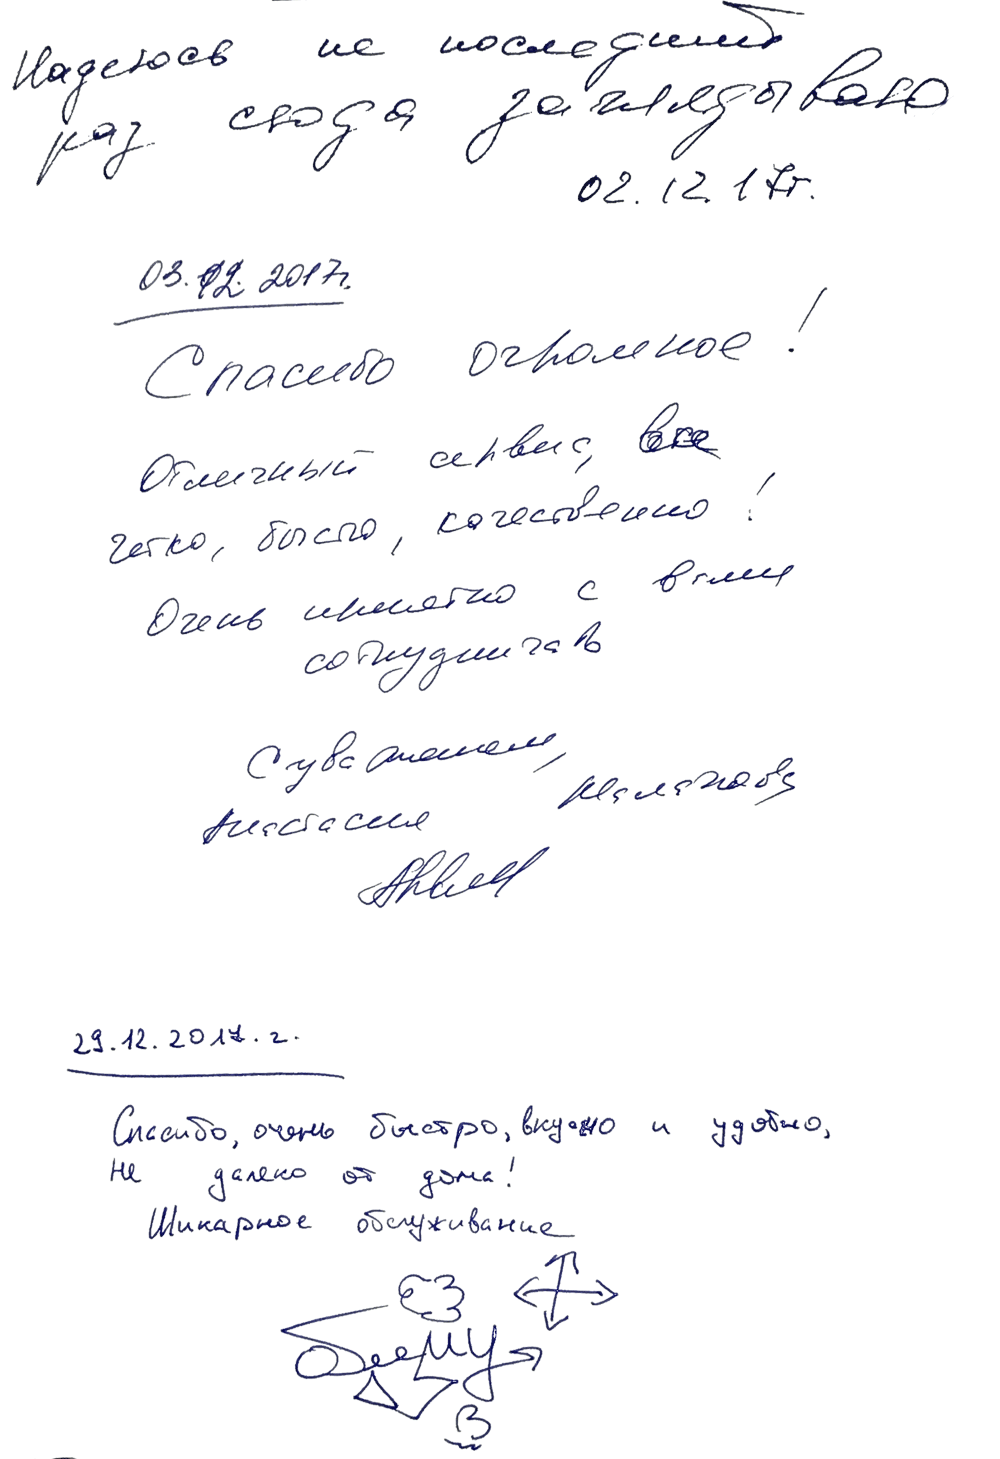 Надеюсь не последний
раз сюда заглядываю
02.12.17г.
03.12.2017г.
Спасибо огромное!
Отличный сервис, все
четко, быстро, качественно!
Очень приятно с вами
сотрудничать
С уважением,
Анастасия
29.12.2017.г.
Спасибо, очень быстро, вкусно и удобно,
не далеко от дома!
Шикарное обслуживание